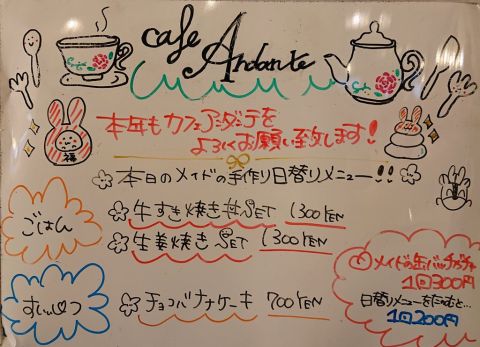 cafe Andante
本年もカフェアンダンテを
よろしくお願い致します!
福
本日のメイドの手作り日替りメニュー!!
ごはん
牛すき焼き丼SET 1300YEN
生姜焼きSET 1300YEN
すいーつ
チョコバナナケーキ 700YEN
メイドの缶バッヂガチャ
1回300円
日替りメニューをたのむと…
1回200円